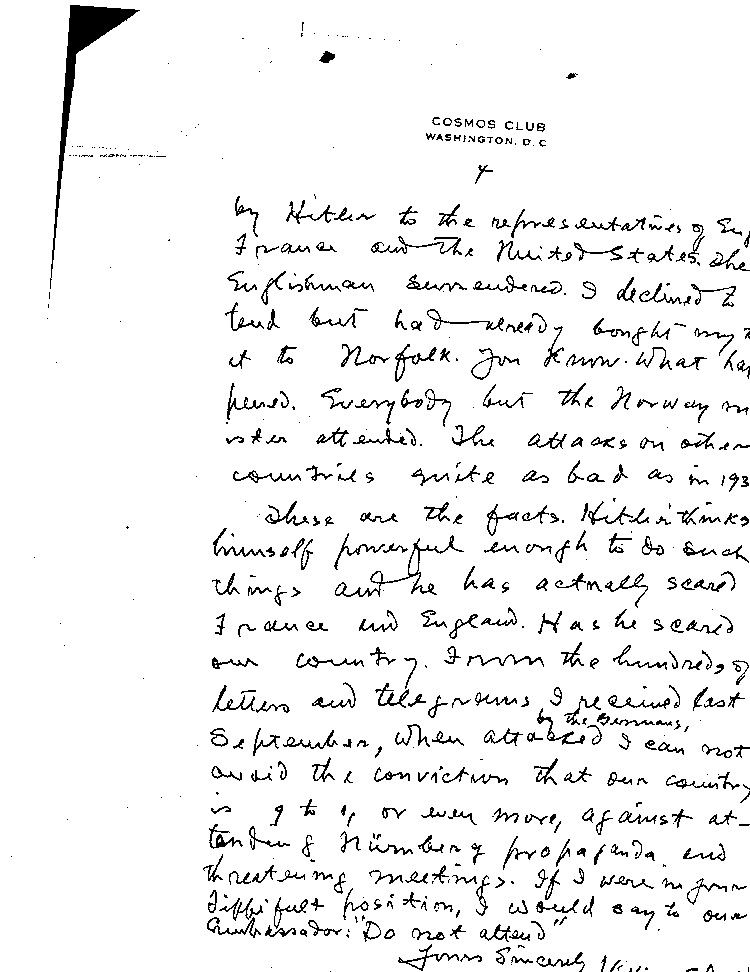 COSMOS CLUB
WASHINGTON, D. C
4
by Hitler to the representatives of Eng
France and the United States. The
Englishman surrendered. I declined to
tend but had already bought my t
et to Norfolk. You know what hap
pened. Everybody but the Norway m
ister attended. The attacks on other
countries quite as bad as in 193
These are the facts. Hitler thinks
himself powerful enough to do such
things and he has actually scared
France and England. Has he scared
our country. From the hundreds of
letters and telegrams I received last
by the Germans,
September, when attacked I can not
avoid the conviction that our country
is 9 to 1, or even more, against at-
tending Nürnberg propaganda and
threatening meetings. If I were in your
difficult position, I would say to our
Ambassador: "Do not attend"
Yours Sincerely